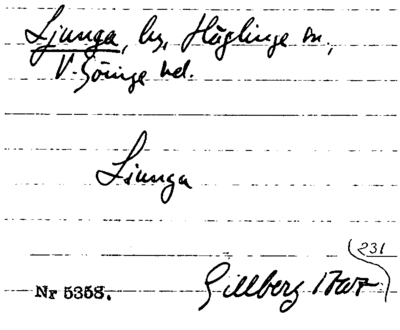 Ljunga, by, Häglinge sn,
V. Göinge hd.
Liunga
231
Nr 5358. Gillberg